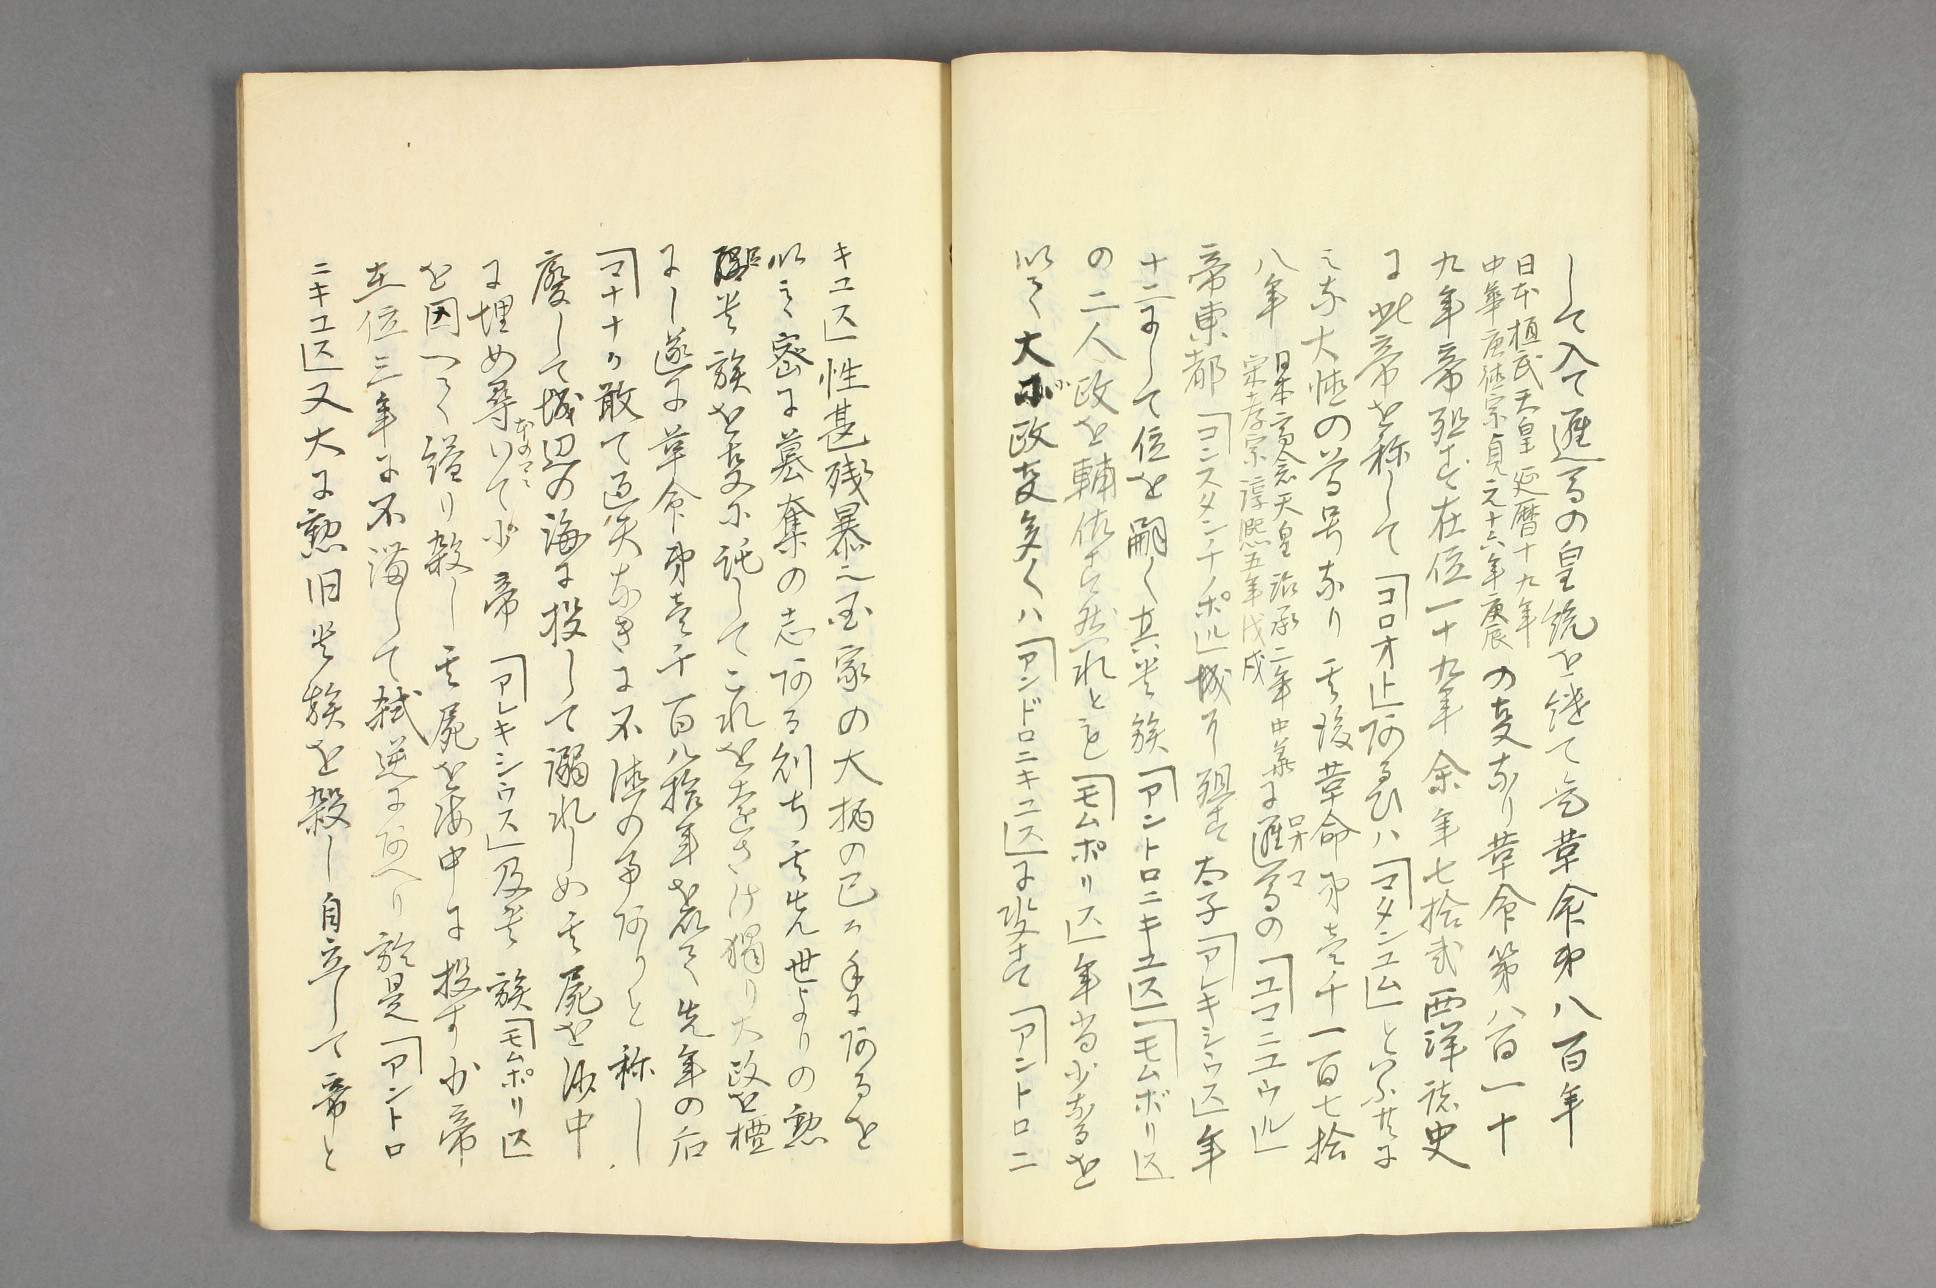 して入て進るの皇統を継て是革命第八百年
日本植氏天皇延暦十九年
中華唐徳宗貞元十六年庚辰
の支なり革命第八百一十
九年帝殂す在位一十九年余年七拾弐西洋諸史
に此帝を称して「コロオト」或ひハ「マクンユム」といふ共に
之な大徳の尊号なり其後革命第壱千一百七拾
八年
日本高倉天皇治承二年中華
宋孝宗淳熙五年戊戌
に進るの「コマニユウル」
帝東都「コンスタンチノポル」城に殂す太子「アレキシウス」年
十二にして位を嗣く其貴族「アントロニキユス」「モムポリス」
の二人政を輔佐す然れとも「モムポリス」年尚少なるを
以て大小政支多くハ「アンドロニキユス」に決す「アントロニ
キユス」性甚残暴之国家の大柄の己か手に有るを
以之密に墓奪の志ある則ち其先世よりの勲
旧貴族を支に託してこれを遠さけ獨り大政を檀
にし遂に革命第壱千百八拾年を於て先年の后
「マナナ」か敢て過失なきに不徳の事ありと称し
廃して城辺の海に投して溺れしめ其屍を沙中
に埋め尋いて少帝「アレキシウス」及貴族「モムポリス」
を因つて謚り殺し其屍を海中に投す少帝
在位三年に不満して弑逆にあへり於是「アントロ
ニキユス」又大に勲旧貴族を殺し自立して帝と